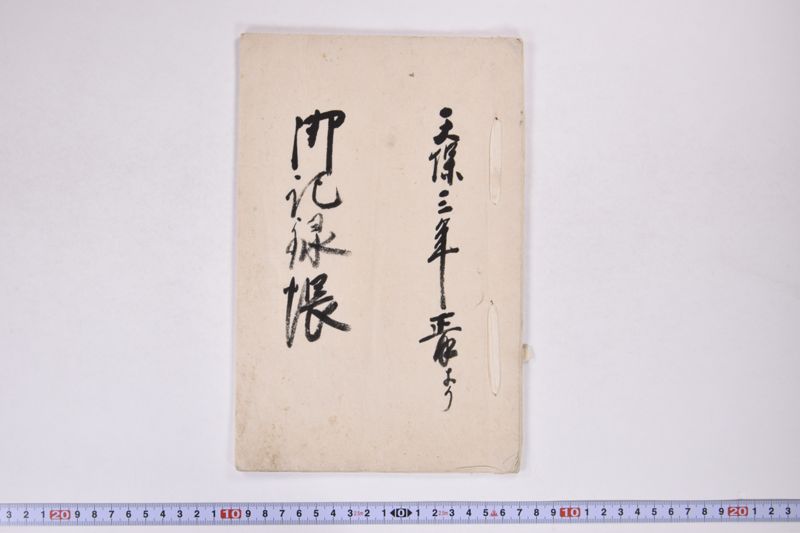 天保三年より
御記録帳
3 2 1 20 9 8 7 6 5 4 3 2 1 10 9 8 7 6 5 4 3 2 1 0 1 2 3 4 5 6 7 8 9 10 1 2 3 4 5 6 7 8 9 20 1 2 3